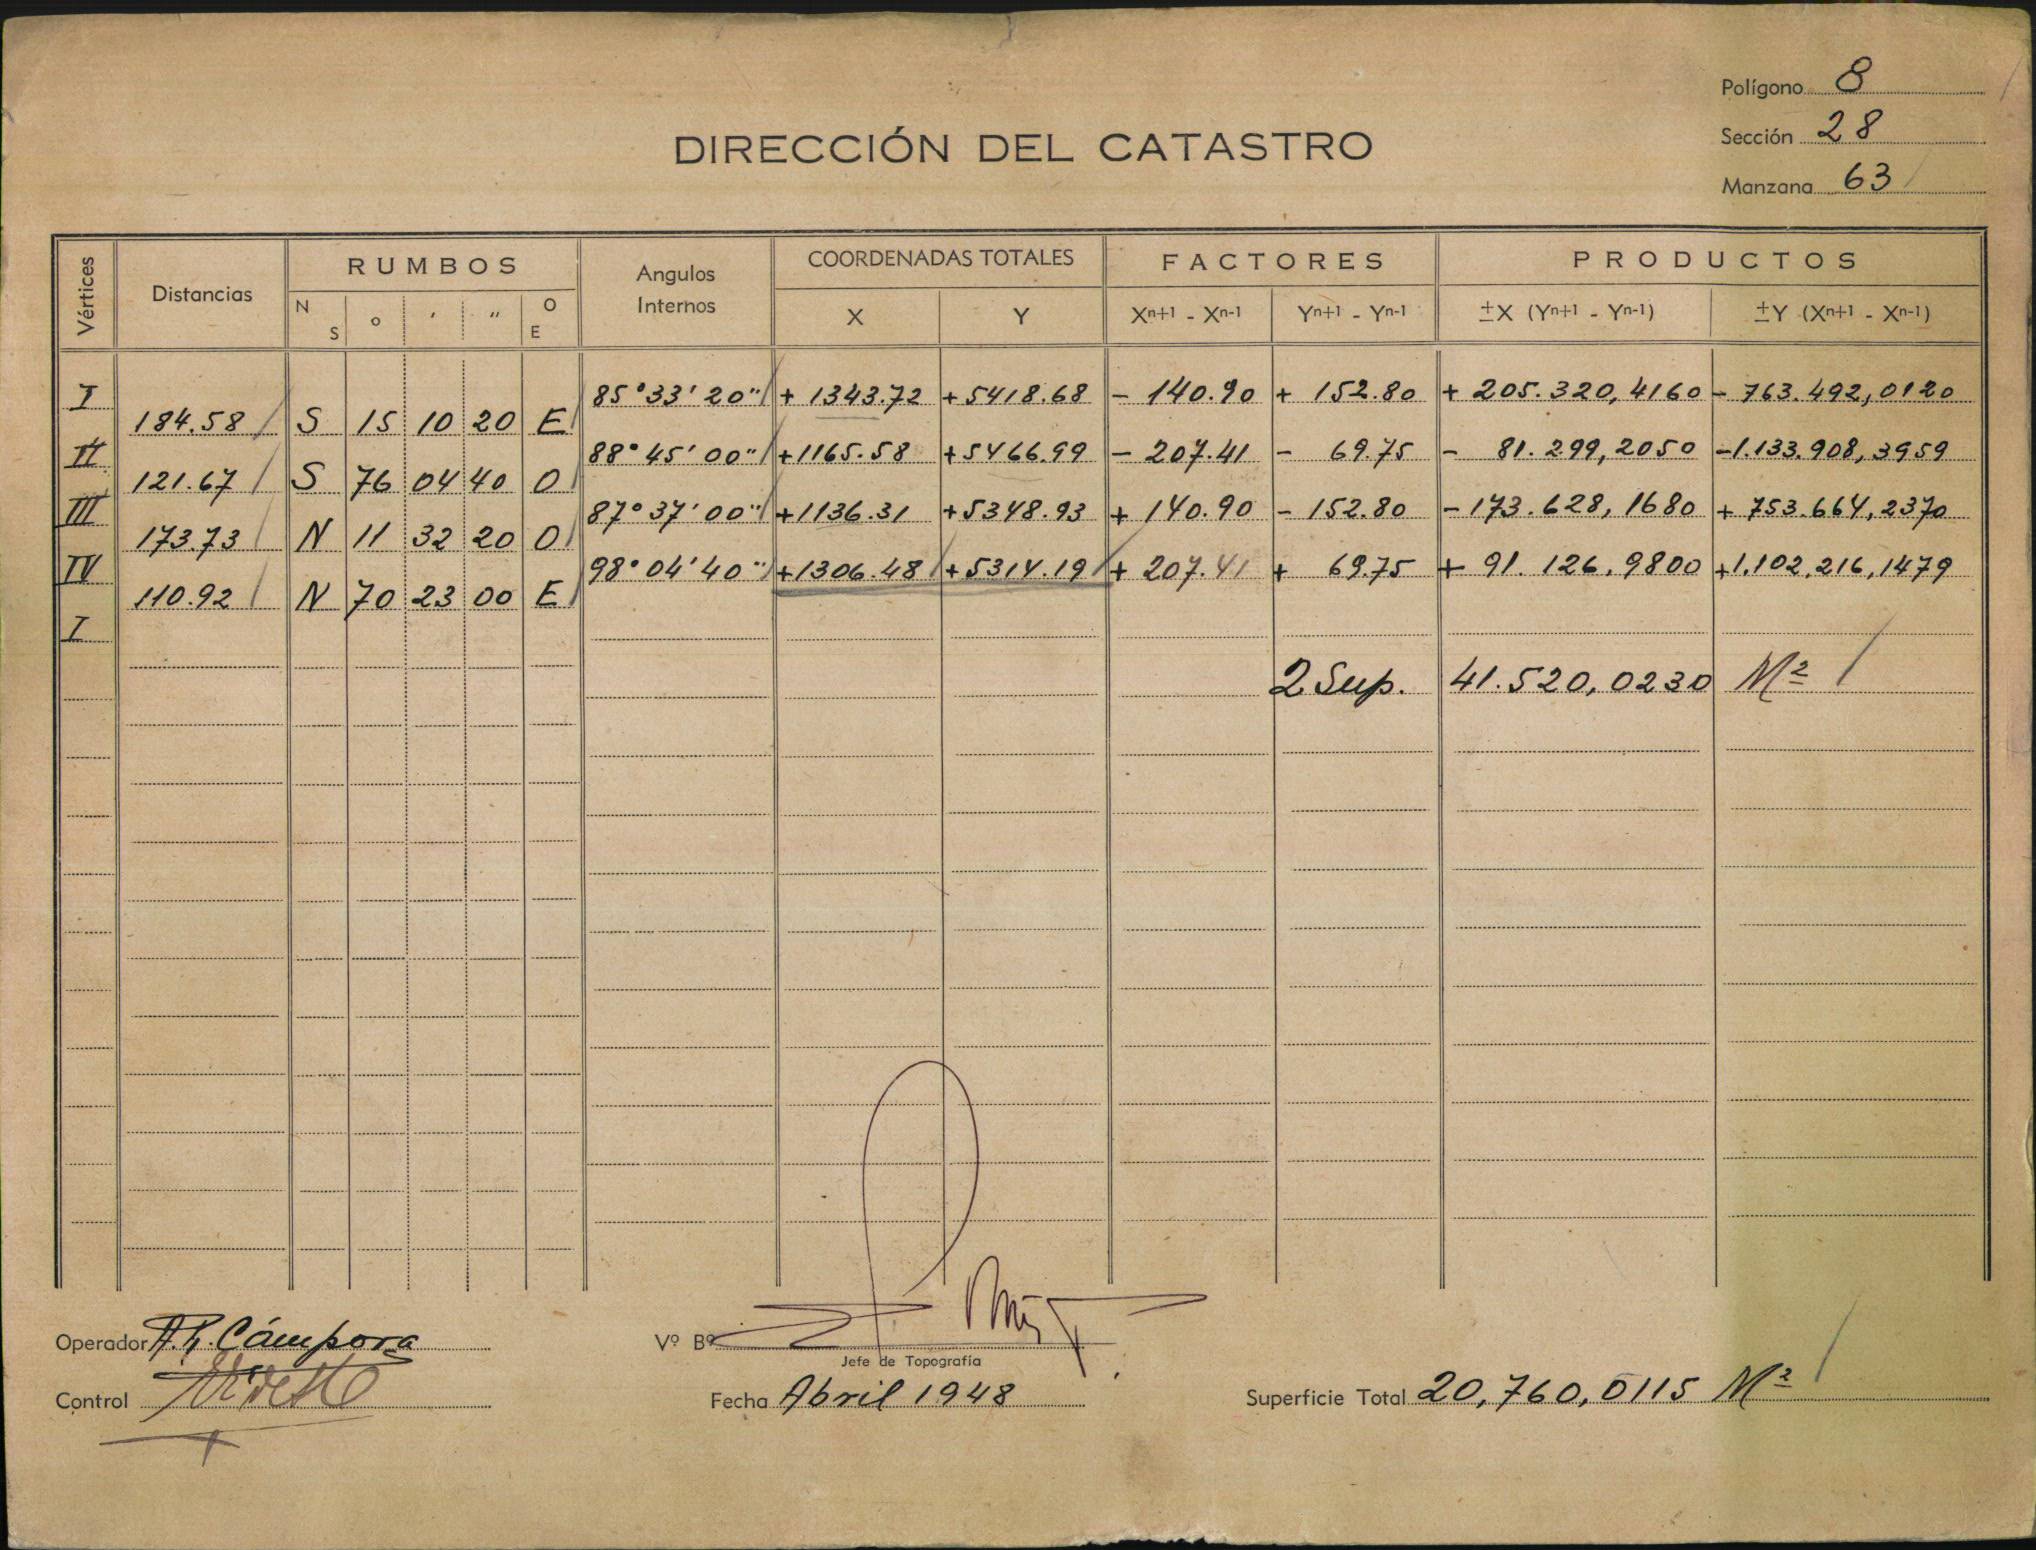 Polígono 8
Sección 28
Manzana 63
DIRECCIÓN DEL CATASTRO
Vértices Distancias RUMBOS Angulos Internos COORDENADAS TOTALES FACTORES PRODUCTOS
N S o ʹ ʺ O E X Y Xn+1 - Xn-1 Yn+1 - Yn-1 ±X (Yn+1 - Yn-1) ±Y (Xn+1 - Xn-1)
I 85°33'20" + 1343.72 +5418.68 - 140.90 + 152.80 + 205.320,4160 - 763.492,0120
184.58 S 15 10 20 E
II 88°45'00" +1165.58 +5466.99 - 207.41 - 69.75 - 81.299,2050 -1.133.908,3959
121.67 S 76 04 40 O
III 87°37'00" +1136.31 +5348.93 + 140.90 - 152.80 -173.628,1680 + 753.664,2370
173.73 N 11 32 20 O
IV 98°04'40" +1306.48 +5314.19 + 207.41 + 69.75 + 91.126.9800 +1.102.216,1479
110.92 N 70 23 00 E
I
2 Sup. 41.520,0230 M²
Operador A.R. Cámpora
Vº Bº
Jefe de Topografía
Control
Fecha Abril 1948
Superficie Total 20,760,0115 M²